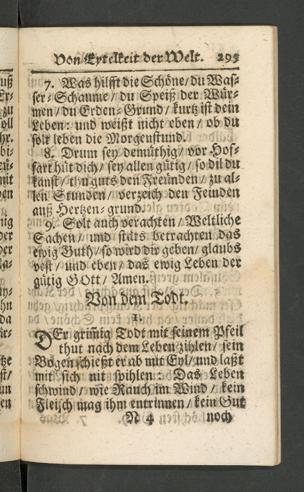 Von Eytelkeit der Welt. 295
7. Was hilfft die Schöne/ du Was-
ser-Schaume/ du Speiß der Wür-
men/ du Erden-Grund/ kurtz ist dein
Leben: und weißt nicht eben/ ob du
solt leben die Morgenstund.
8. Drum sey demüthig/ vor Hof-
fart hüt dich/ sey allen gütig/ so dil du
kanst/ thu guts den Freunden/ zu al-
len Stunden/ verzeich den Feinden
auß Hertzen-grund.
9. Solt auch verachten/ Weltliche
Sachen/ und stäts betrachten das
ewig Guth/ so wird dir geben/ glaubs
vest/ und eben/ das ewig Leben der
gütig GOtt/ Amen.
Von dem Todt.
1.
DEr grimig Todt mit seinem Pfeil
thut nach dem Leben zihlen/ sein
Bogen schießt er ab mit Eyl/ und laßt
mit sich nit spihlen: Das Leben
schwind/ wie Rauch im Wind/ kein
Fleisch mag ihm entrinnen/ kein Gut
N 4 noch